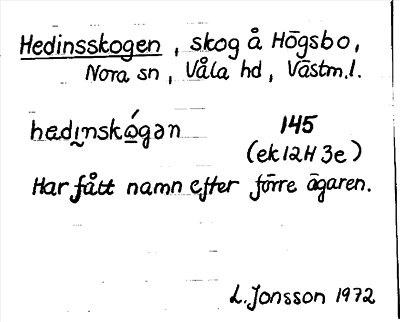 Hedinsskogen, skog å Högsbo,
Nora sn, Våla hd, Västm.l.
hedi̱nskǫ́gən 145
(ek 12H 3e)
Har fått namn efter förre ägaren.
L. Jonsson 1972